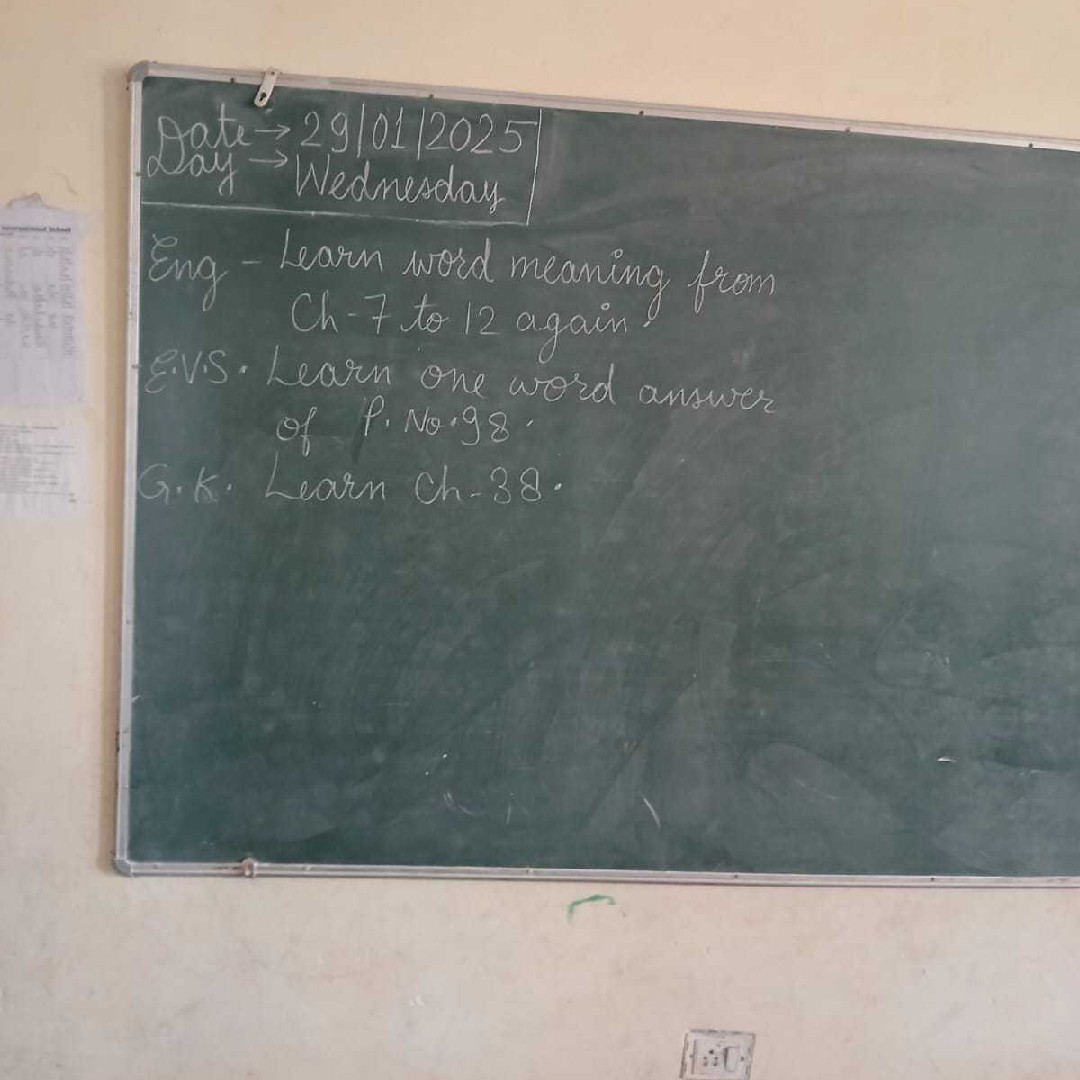 Date → 29/01/2025
Day → Wednesday
Eng - Learn word meaning from
Ch-7 to 12 again.
E.V.S. Learn one word answer
of P. No. 98.
G.K. Learn Ch-38.